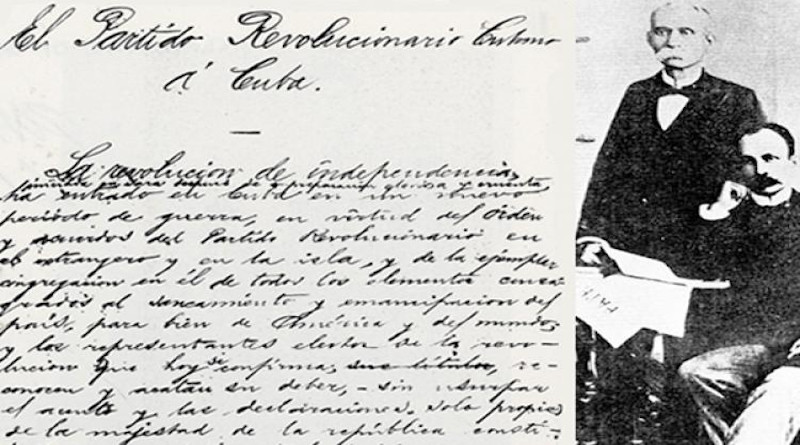 El Partido Revolucionario Cubano
á Cuba.
La revolucion de independencia,
iniciada en Yara despues de preparacion gloriosa y cruenta
ha entrado en Cuba en un nuevo
periodo de guerra, en virtud del órden
y acuerdos del Partido Revolucionario en
el extrangero y en la isla, y de la ejemplar
congregacion en él de todos los elementos consa-
grados al saneamiento y emancipacion del
país, para bien de América y del mundo;
y los representantes electos de la revo-
lucion que hoy se confirma, re-
conocen y acatan su deber, - sin usurpar
el acento y las declaraciones solo propias
de la majestad de la república consti-